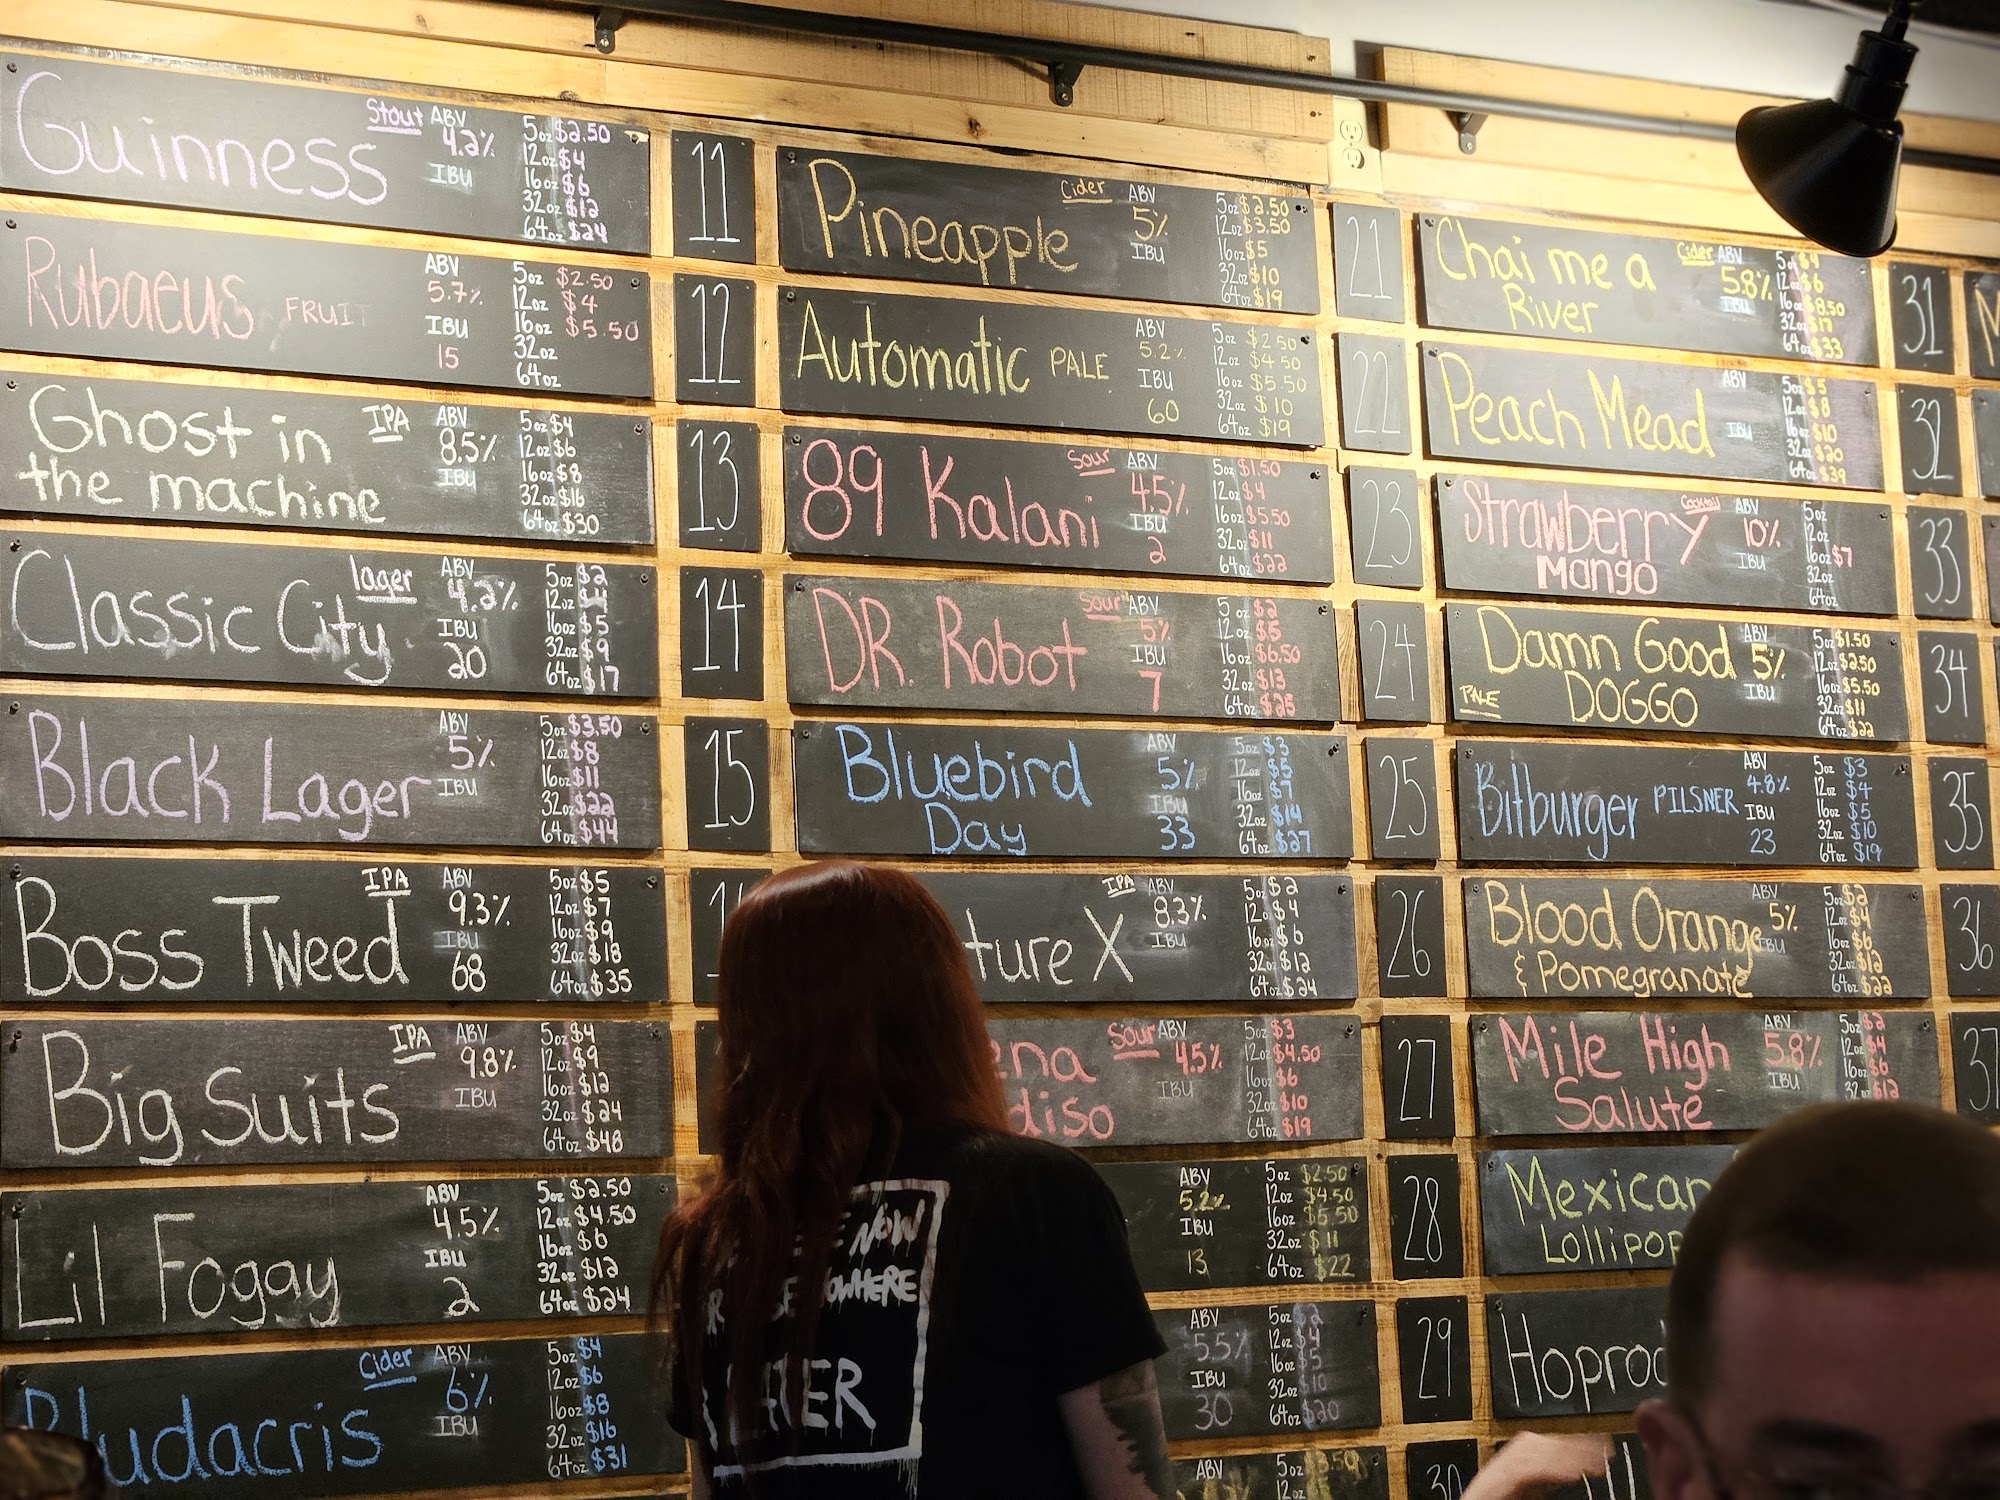 Guinness Stout ABV 4.2% IBU
5oz $2.50
12oz $4
16oz $6
32oz $12
64oz $24
Rubaeus FRUIT ABV 5.7% IBU 15
5oz $2.50
12oz $4
16oz $5.50
32oz
64oz
Ghost in the machine IPA ABV 8.5% IBU
5oz $4
12oz $6
16oz $8
32oz $16
64oz $30
Classic City lager ABV 4.2% IBU 20
5oz $2
12oz
16oz $5
32oz $9
64oz $17
Black Lager ABV 5% IBU
5oz $3.50
12oz $8
16oz $11
32oz $22
64oz $44
Boss Tweed IPA ABV 9.3% IBU 68
5oz $5
12oz $7
16oz $9
32oz $18
64oz $35
Big Suits IPA ABV 9.8% IBU
5oz $4
12oz $9
16oz $12
32oz $24
64oz $48
Lil Fogay ABV 4.5% IBU 2
5oz $2.50
12oz $4.50
16oz $6
32oz $12
64oz $24
Bludacris Cider ABV 6% IBU
5oz $4
12oz $6
16oz $8
32oz $16
64oz $31
11
Pineapple Cider ABV 5% IBU
5oz $2.50
12oz $3.50
16oz $5
32oz $10
64oz $19
12
Automatic PALE ABV 5.2% IBU 60
5oz $2.50
12oz $4.50
16oz $5.50
32oz $10
64oz $19
13
89 Kalani Sour ABV 4.5% IBU 2
5oz $1.50
12oz $4
16oz $5.50
32oz $11
64oz $22
14
DR. Robot Sour ABV 5% IBU 7
5oz $2
12oz $5
16oz $6.50
32oz $13
64oz $25
15
Bluebird Day ABV 5% IBU 33
5oz $3
12oz $5
16oz $7
32oz $14
64oz $27
ture X IPA ABV 8.3% IBU
5oz $2
12oz $4
16oz $6
32oz $12
64oz $24
ena diso Sour ABV 4.5% IBU
5oz $3
12oz $4.50
16oz $6
32oz $10
64oz $19
ABV 5.2% IBU 13
5oz $2.50
12oz $4.50
16oz $5.50
32oz $11
64oz $22
ABV 5.5% IBU 30
5oz $2
12oz $4
16oz $5
32oz $10
64oz $20
ABV
5oz $3.50
12oz
21
Chai me a River Cider ABV 5.8% IBU
5oz $4
12oz $6
16oz $8.50
32oz $17
64oz $33
22
Peach Mead ABV IBU
5oz $5
12oz $8
16oz $10
32oz $20
64oz $39
23
Strawberry Mango Cocktail ABV 10% IBU
5oz
12oz
16oz $7
32oz
64oz
24
Damn Good DOGGO PALE ABV 5% IBU
5oz $1.50
12oz $2.50
16oz $5.50
32oz $11
64oz $22
25
Bitburger PILSNER ABV 4.8% IBU 23
5oz $3
12oz $4
16oz $5
32oz $10
64oz $19
26
Blood Orange & Pomegranate ABV 5% IBU
5oz $2
12oz $4
16oz $6
32oz $12
64oz $22
27
Mile High Salute ABV 5.8% IBU
5oz $2
12oz $4
16oz $6
32oz $12
28
Mexican Lollipop
29
Hoproc
30
31
32
33
34
35
36
37
NOW
LATER